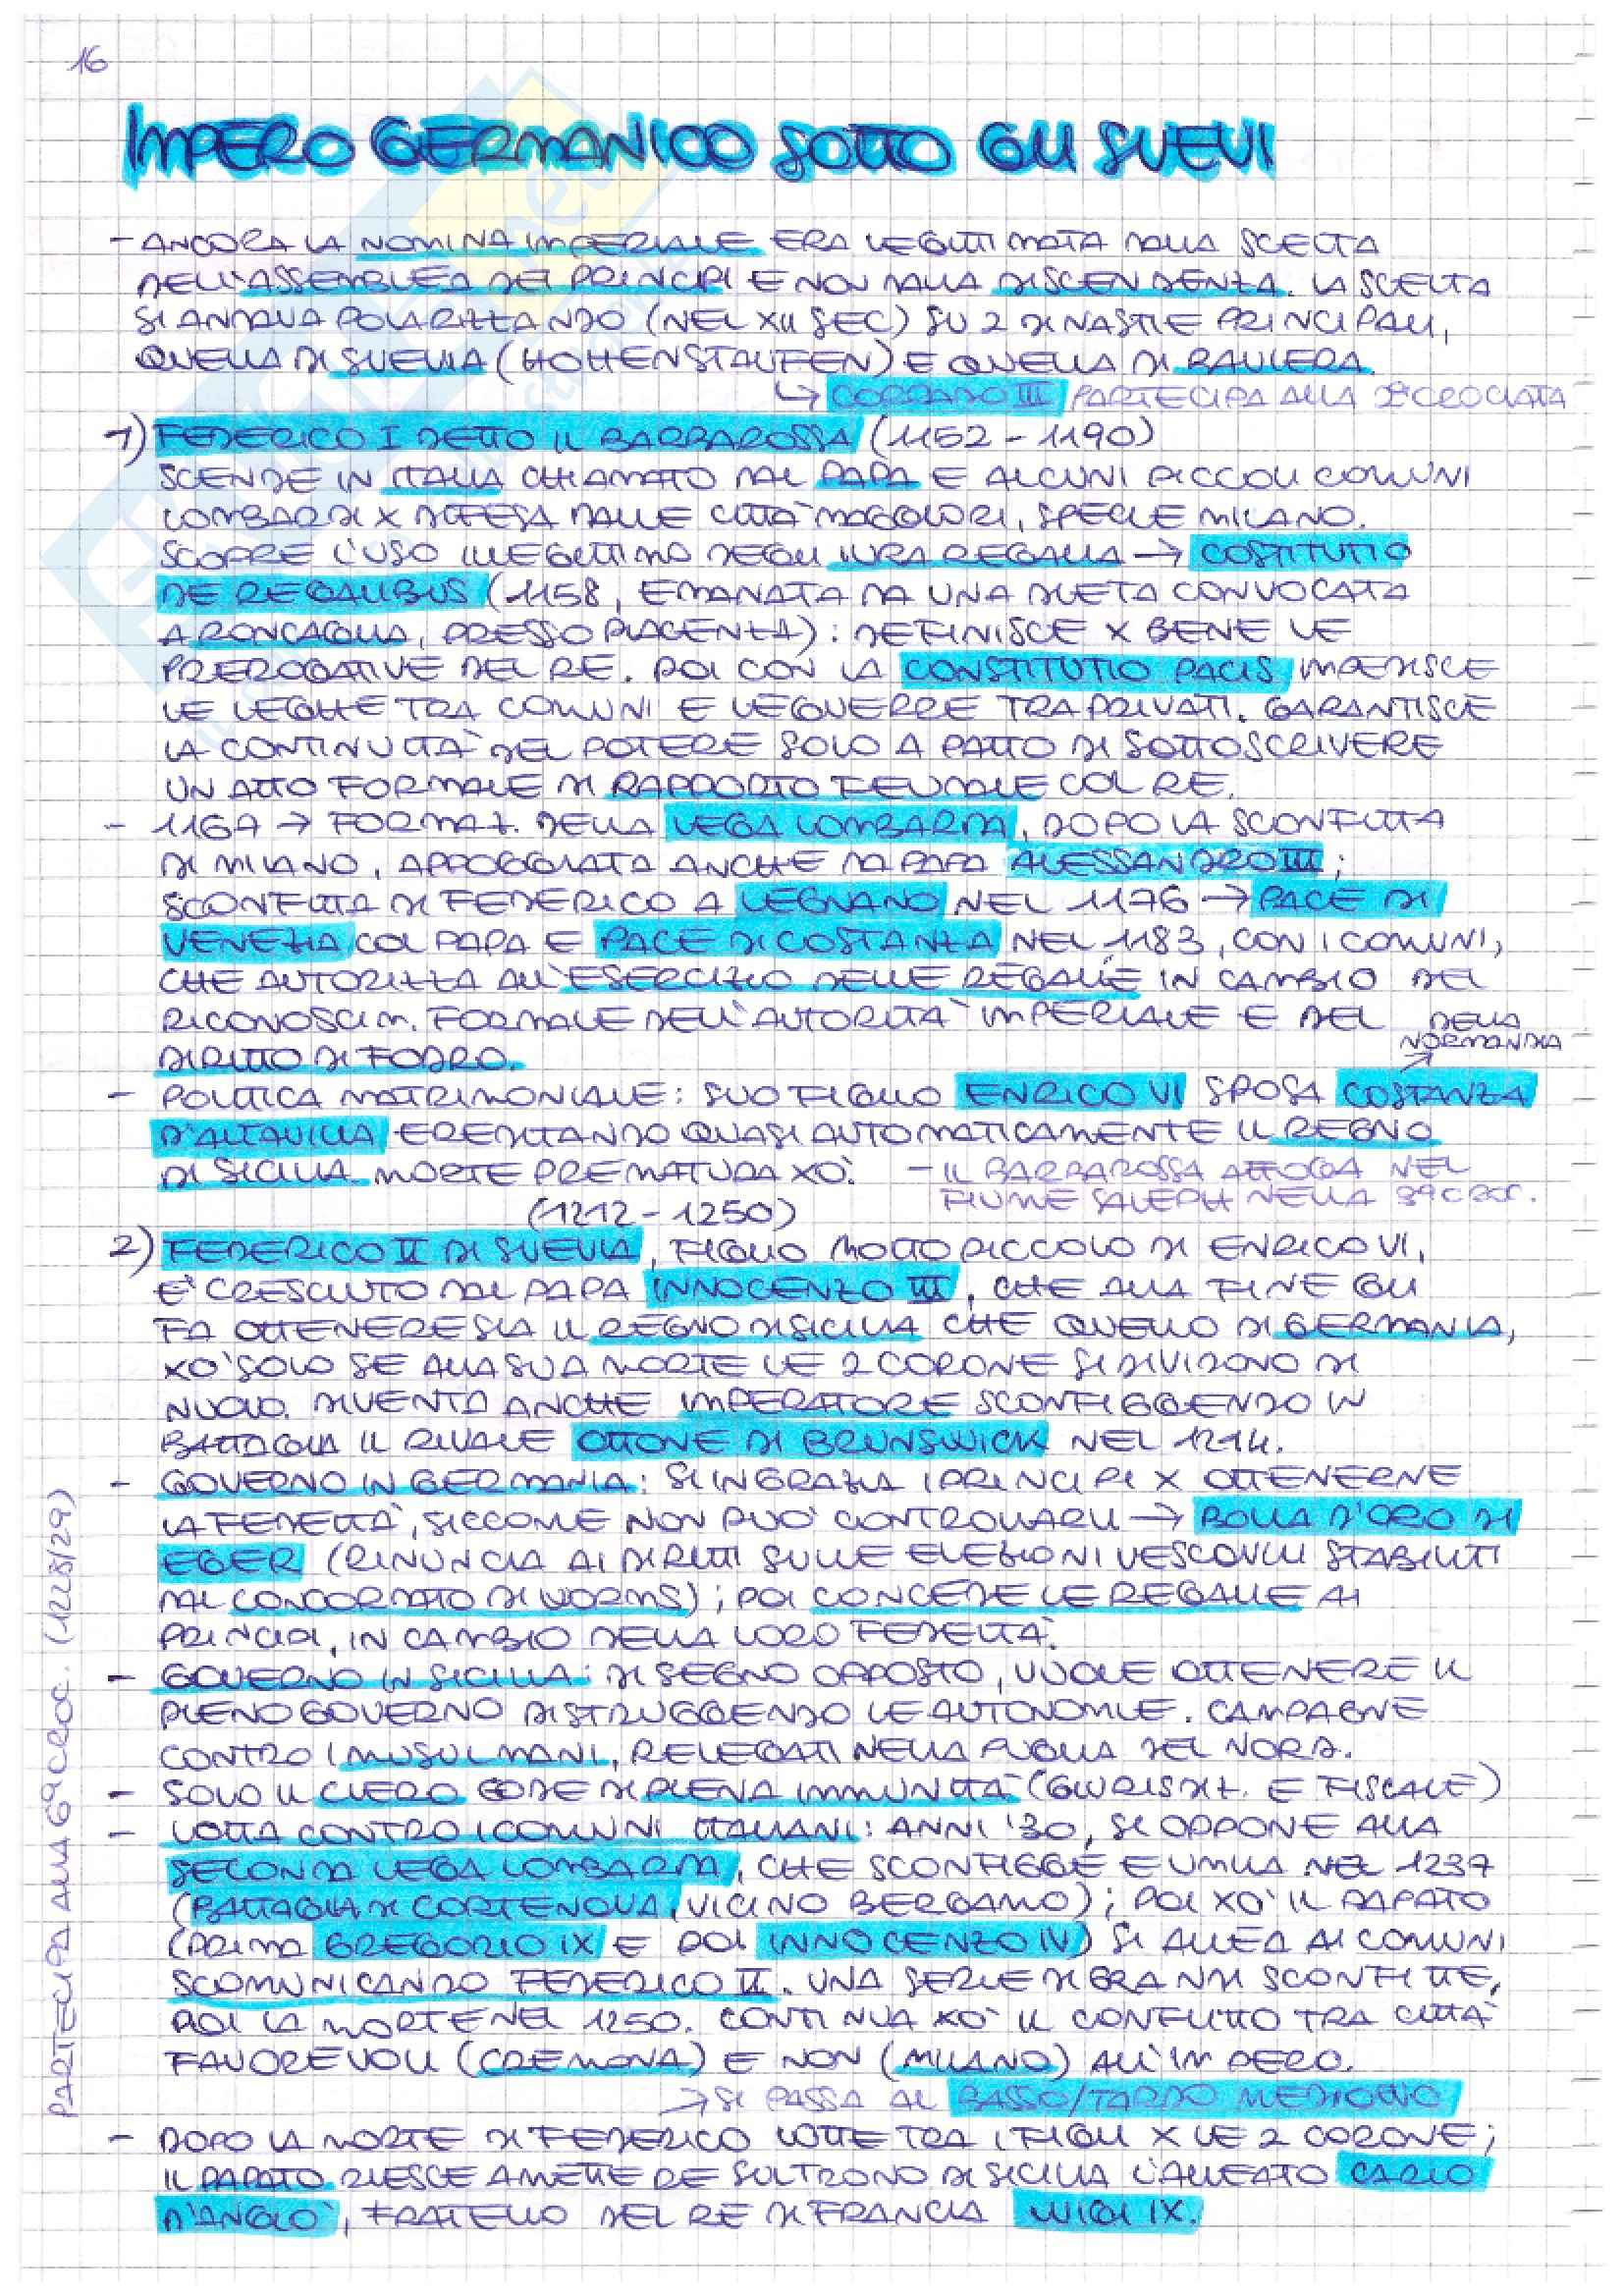 16
IMPERO GERMANICO SOTTO GLI SVEVI
- ANCORA LA NOMINA IMPERIALE ERA LEGITTIMATA DALLA SCELTA
DELL'ASSEMBLEA DEI PRINCIPI E NON DALLA DISCENDENZA. LA SCELTA
SI ANDAVA POLARIZZANDO (NEL XII SEC) SU 2 DINASTIE PRINCIPALI,
QUELLA DI SVEVIA (HOHENSTAUFEN) E QUELLA DI BAVIERA.
↳ CORRADO III PARTECIPA ALLA 2ª CROCIATA
1) FEDERICO I DETTO IL BARBAROSSA (1152 - 1190)
SCENDE IN ITALIA CHIAMATO DAL PAPA E ALCUNI PICCOLI COMUNI
LOMBARDI X DIFESA DALLE CITTÀ MAGGIORI, SPECIE MILANO.
SCOPRE L'USO ILLEGITTIMO DEGLI IURA REGALIA → COSTITUTIO
DE REGALIBUS (1158, EMANATA DA UNA DIETA CONVOCATA
A RONCAGLIA, PRESSO PIACENZA): DEFINISCE X BENE LE
PREROGATIVE DEL RE. POI CON LA CONSTITUTIO PACIS IMPEDISCE
LE LEGHE TRA COMUNI E LE GUERRE TRA PRIVATI. GARANTISCE
LA CONTINUITÀ DEL POTERE SOLO A PATTO DI SOTTOSCRIVERE
UN ATTO FORMALE DI RAPPORTO FEUDALE COL RE.
- 1167 → FORMAZ. DELLA LEGA LOMBARDA, DOPO LA SCONFITTA
DI MILANO, APPOGGIATA ANCHE DA PAPA ALESSANDRO III;
SCONFITTA DI FEDERICO A LEGNANO NEL 1176 → PACE DI
VENEZIA COL PAPA E PACE DI COSTANZA NEL 1183, CON I COMUNI,
CHE AUTORIZZA ALL'ESERCIZIO DELLE REGALIE IN CAMBIO DEL
RICONOSCIM. FORMALE DELL'AUTORITÀ IMPERIALE E DEL
DIRITTO DI FODRO.
DELLA
NORMANDIA
- POLITICA MATRIMONIALE: SUO FIGLIO ENRICO VI SPOSA COSTANZA
D'ALTAVILLA EREDITANDO QUASI AUTOMATICAMENTE IL REGNO
DI SICILIA. MORTE PREMATURA XÒ.
- IL BARBAROSSA AFFOGA NEL
FIUME SALEPH NELLA 3ª CROC.
(1212 - 1250)
2) FEDERICO II DI SVEVIA, FIGLIO MOLTO PICCOLO DI ENRICO VI,
E' CRESCIUTO DAL PAPA INNOCENZO III, CHE ALLA FINE GLI
FA OTTENERE SIA IL REGNO DI SICILIA CHE QUELLO DI GERMANIA,
XÒ SOLO SE ALLA SUA MORTE LE 2 CORONE SI DIVIDONO DI
NUOVO. DIVENTA ANCHE IMPERATORE SCONFIGGENDO IN
BATTAGLIA IL RIVALE OTTONE DI BRUNSWICK NEL 1214.
- GOVERNO IN GERMANIA: SI INGRAZIA I PRINCIPI X OTTENERNE
LA FEDELTÀ, SICCOME NON PUÒ CONTROLLARLI → BOLLA D'ORO DI
EGER (RINUNCIA AI DIRITTI SULLE ELEZIONI VESCOVILI STABILITI
DAL CONCORDATO DI WORMS); POI CONCEDE LE REGALIE AI
PRINCIPI, IN CAMBIO DELLA LORO FEDELTÀ.
- GOVERNO IN SICILIA: DI SEGNO OPPOSTO, VUOLE OTTENERE IL
PIENO GOVERNO DISTRUGGENDO LE AUTONOMIE. CAMPAGNE
CONTRO I MUSULMANI, RELEGATI NELLA PUGLIA DEL NORD.
- SOLO IL CLERO GODE DI PIENA IMMUNITÀ (GIURISDIZ. E FISCALE)
- LOTTA CONTRO I COMUNI ITALIANI: ANNI '30, SI OPPONE ALLA
SECONDA LEGA LOMBARDA, CHE SCONFIGGE E UMILIA NEL 1237
(BATTAGLIA DI CORTENOVA, VICINO BERGAMO); POI XÒ IL PAPATO
(PRIMA GREGORIO IX E POI INNOCENZO IV) SI ALLEA AI COMUNI
SCOMUNICANDO FEDERICO II. UNA SERIE DI GRANDI SCONFITTE,
POI LA MORTE NEL 1250. CONTINUA XÒ IL CONFLITTO TRA CITTÀ
FAVOREVOLI (CREMONA) E NON (MILANO) ALL'IMPERO.
→ SI PASSA AL BASSO/TARDO MEDIOEVO
- DOPO LA MORTE DI FEDERICO LOTTE TRA I FIGLI X LE 2 CORONE;
IL PAPATO RIESCE A METTERE SUL TRONO DI SICILIA L'ALLEATO CARLO
D'ANGIÒ, FRATELLO DEL RE DI FRANCIA LUIGI IX.
PARTECIPA ALLA 6ª CROC. (1228/29)